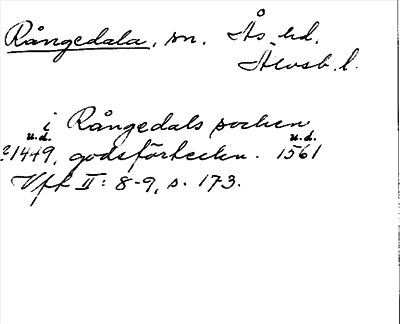 Rångedala, sn. Ås hd.
Älvsb. l.
i Rångedals socken
u.d. u.d.
?1449, godsförteckn. 1561
Vft II: 8-9, s. 173.